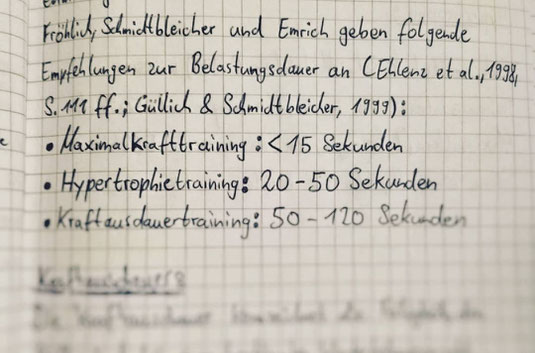 Fröhlich, Schmidtbleicher und Emrich geben folgende
Empfehlungen zur Belastungsdauer an (Ehlenz et al., 1998,
S. 111 ff.; Güllich & Schmidtbleicher, 1999):
• Maximalkrafttraining: < 15 Sekunden
• Hypertrophietraining: 20 - 50 Sekunden
• Kraftausdauertraining: 50 - 120 Sekunden